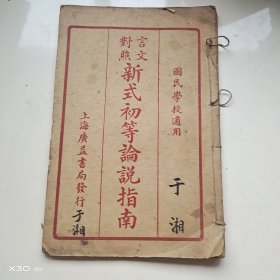 國民學校適用
于湘
言文
對照
新式初等論說指南
上海廣益書局發行
于湘
X30